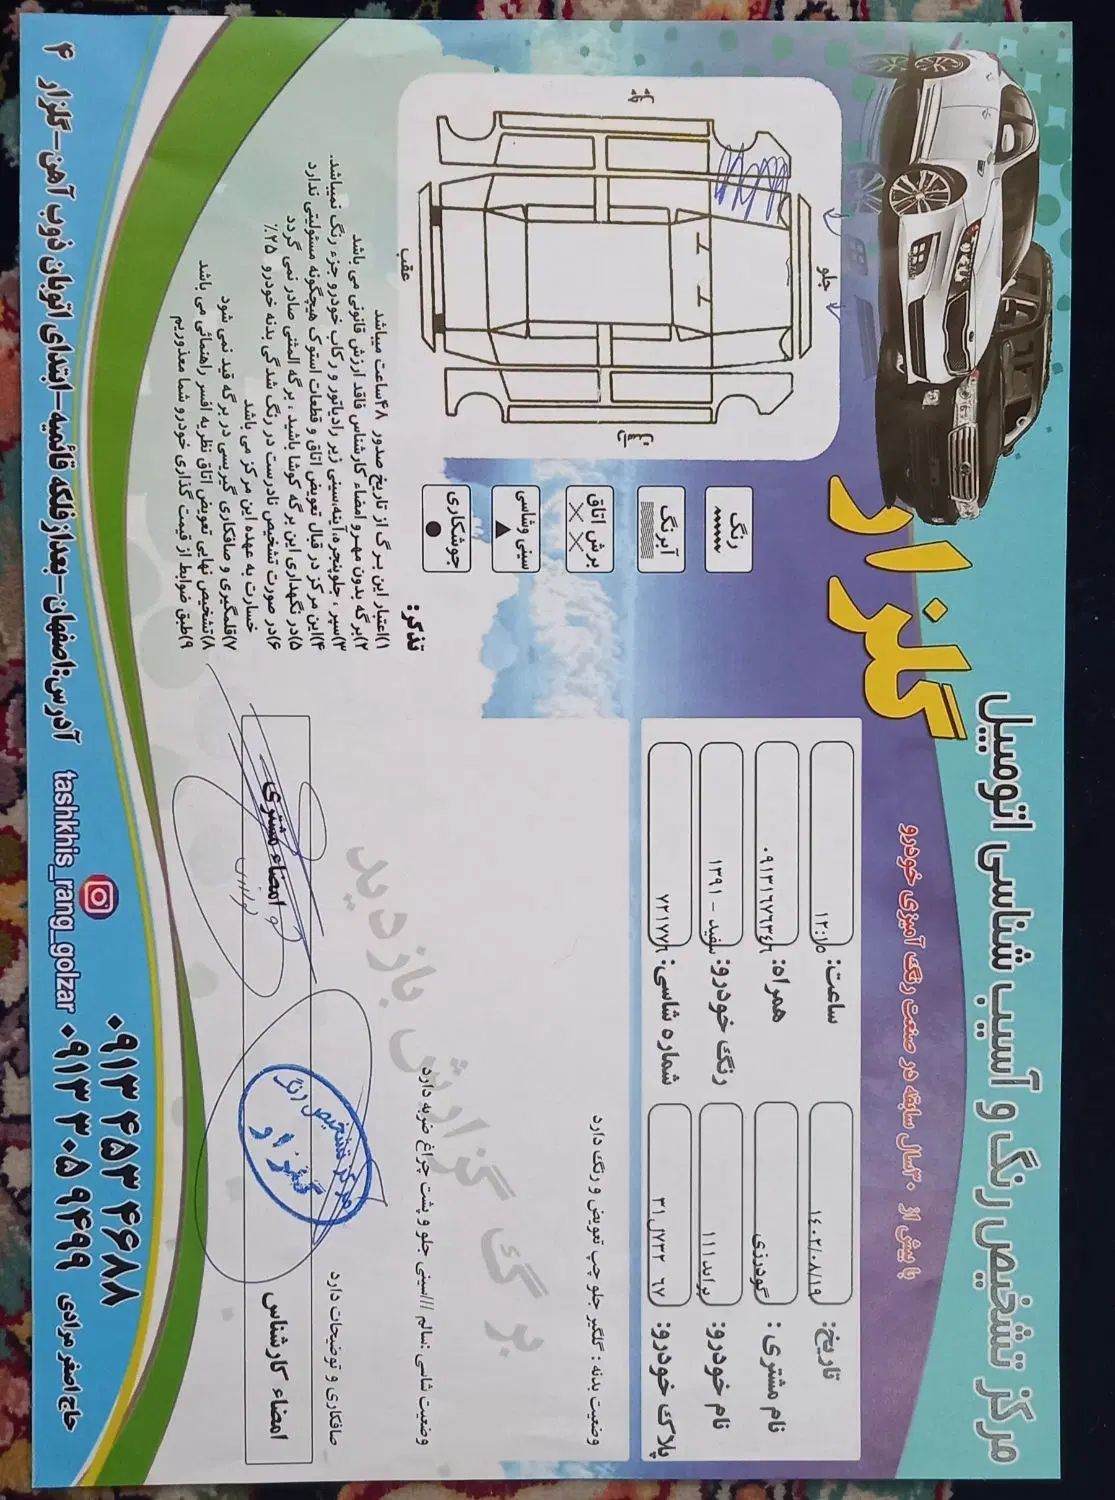 مرکز تشخیص رنگ و آسیب شناسی اتومبیل
گلزار
با بیش از ۳۰سال سابقه در صنعت رنگ آمیزی خودرو
تاریخ: ۱۴۰۲/۰۸/۱۹
ساعت: ۱۲:۱۵
نام مشتری: گودرزی
همراه: ۰۹۱۳۱۶۷۶۳۴۶
نام خودرو: پراید۱۱۱
رنگ خودرو: سفید - ۱۳۹۱
پلاک خودرو: ۶۷ ۷۳۲ل۳۱
شماره شاسی: ۷۲۱۷۷۶
جلو
عقب
رنگ
آبرنگ
برش اتاق
سینی وشاسی
جوشکاری
وضعیت بدنه : گلگیر جلو چپ تعویض و رنگ دارد
برگ گزارش بازدید
وضعیت شاسی :سالم ///سینی جلو و پشت چراغ ضربه دارد
صافکاری و توضیحات دارد
تذکر:
۱)اعتبار این بـرگ از تاریخ صدور ۴۸ساعت میباشد
۲)برگه بدون مهـر و امضاء کارشناس فاقد ارزش قانونی می باشد
۳)سپر ، جلوپنجره،آینه،سینی زیر رادیاتور و رکاب خودرو جزء رنگ نمیباشد.
۴)این مرکز در قبال تعویض اتاق و قطعات استوک هیچگونه مسئولیتی ندارد
۵)در نگهداری این برگه کوشا باشید ، برگه المثنی صادر نمی گردد
۶)در صورت تشخیص نادرست در رنگ شدگی بدنه خودرو ۲۵٪
خسارت به عهده این مرکز می باشد
۷)قلمگیری و صافکاری گیریسی در برگه قید نمی شود
۸)تشخیص نهایی تعویض اتاق نظر به افسر راهنمائی می باشد
۹)طبق ضوابط از قیمت گذاری خودرو شما معذوریم
امضاء کارشناس
مرکز تشخیص رنگ
گلزار
امضاء مشتری
۰۹۱۳ ۴۵۳ ۴۶۸۸
۰۹۱۳ ۳۰۵ ۹۴۹۹
حاج اصغر مرادی
tashkhis_rang_golzar
آدرس:اصفهان-بعدازفلکه قائمیه-ابتدای اتوبان ذوب آهن-گلزار ۴